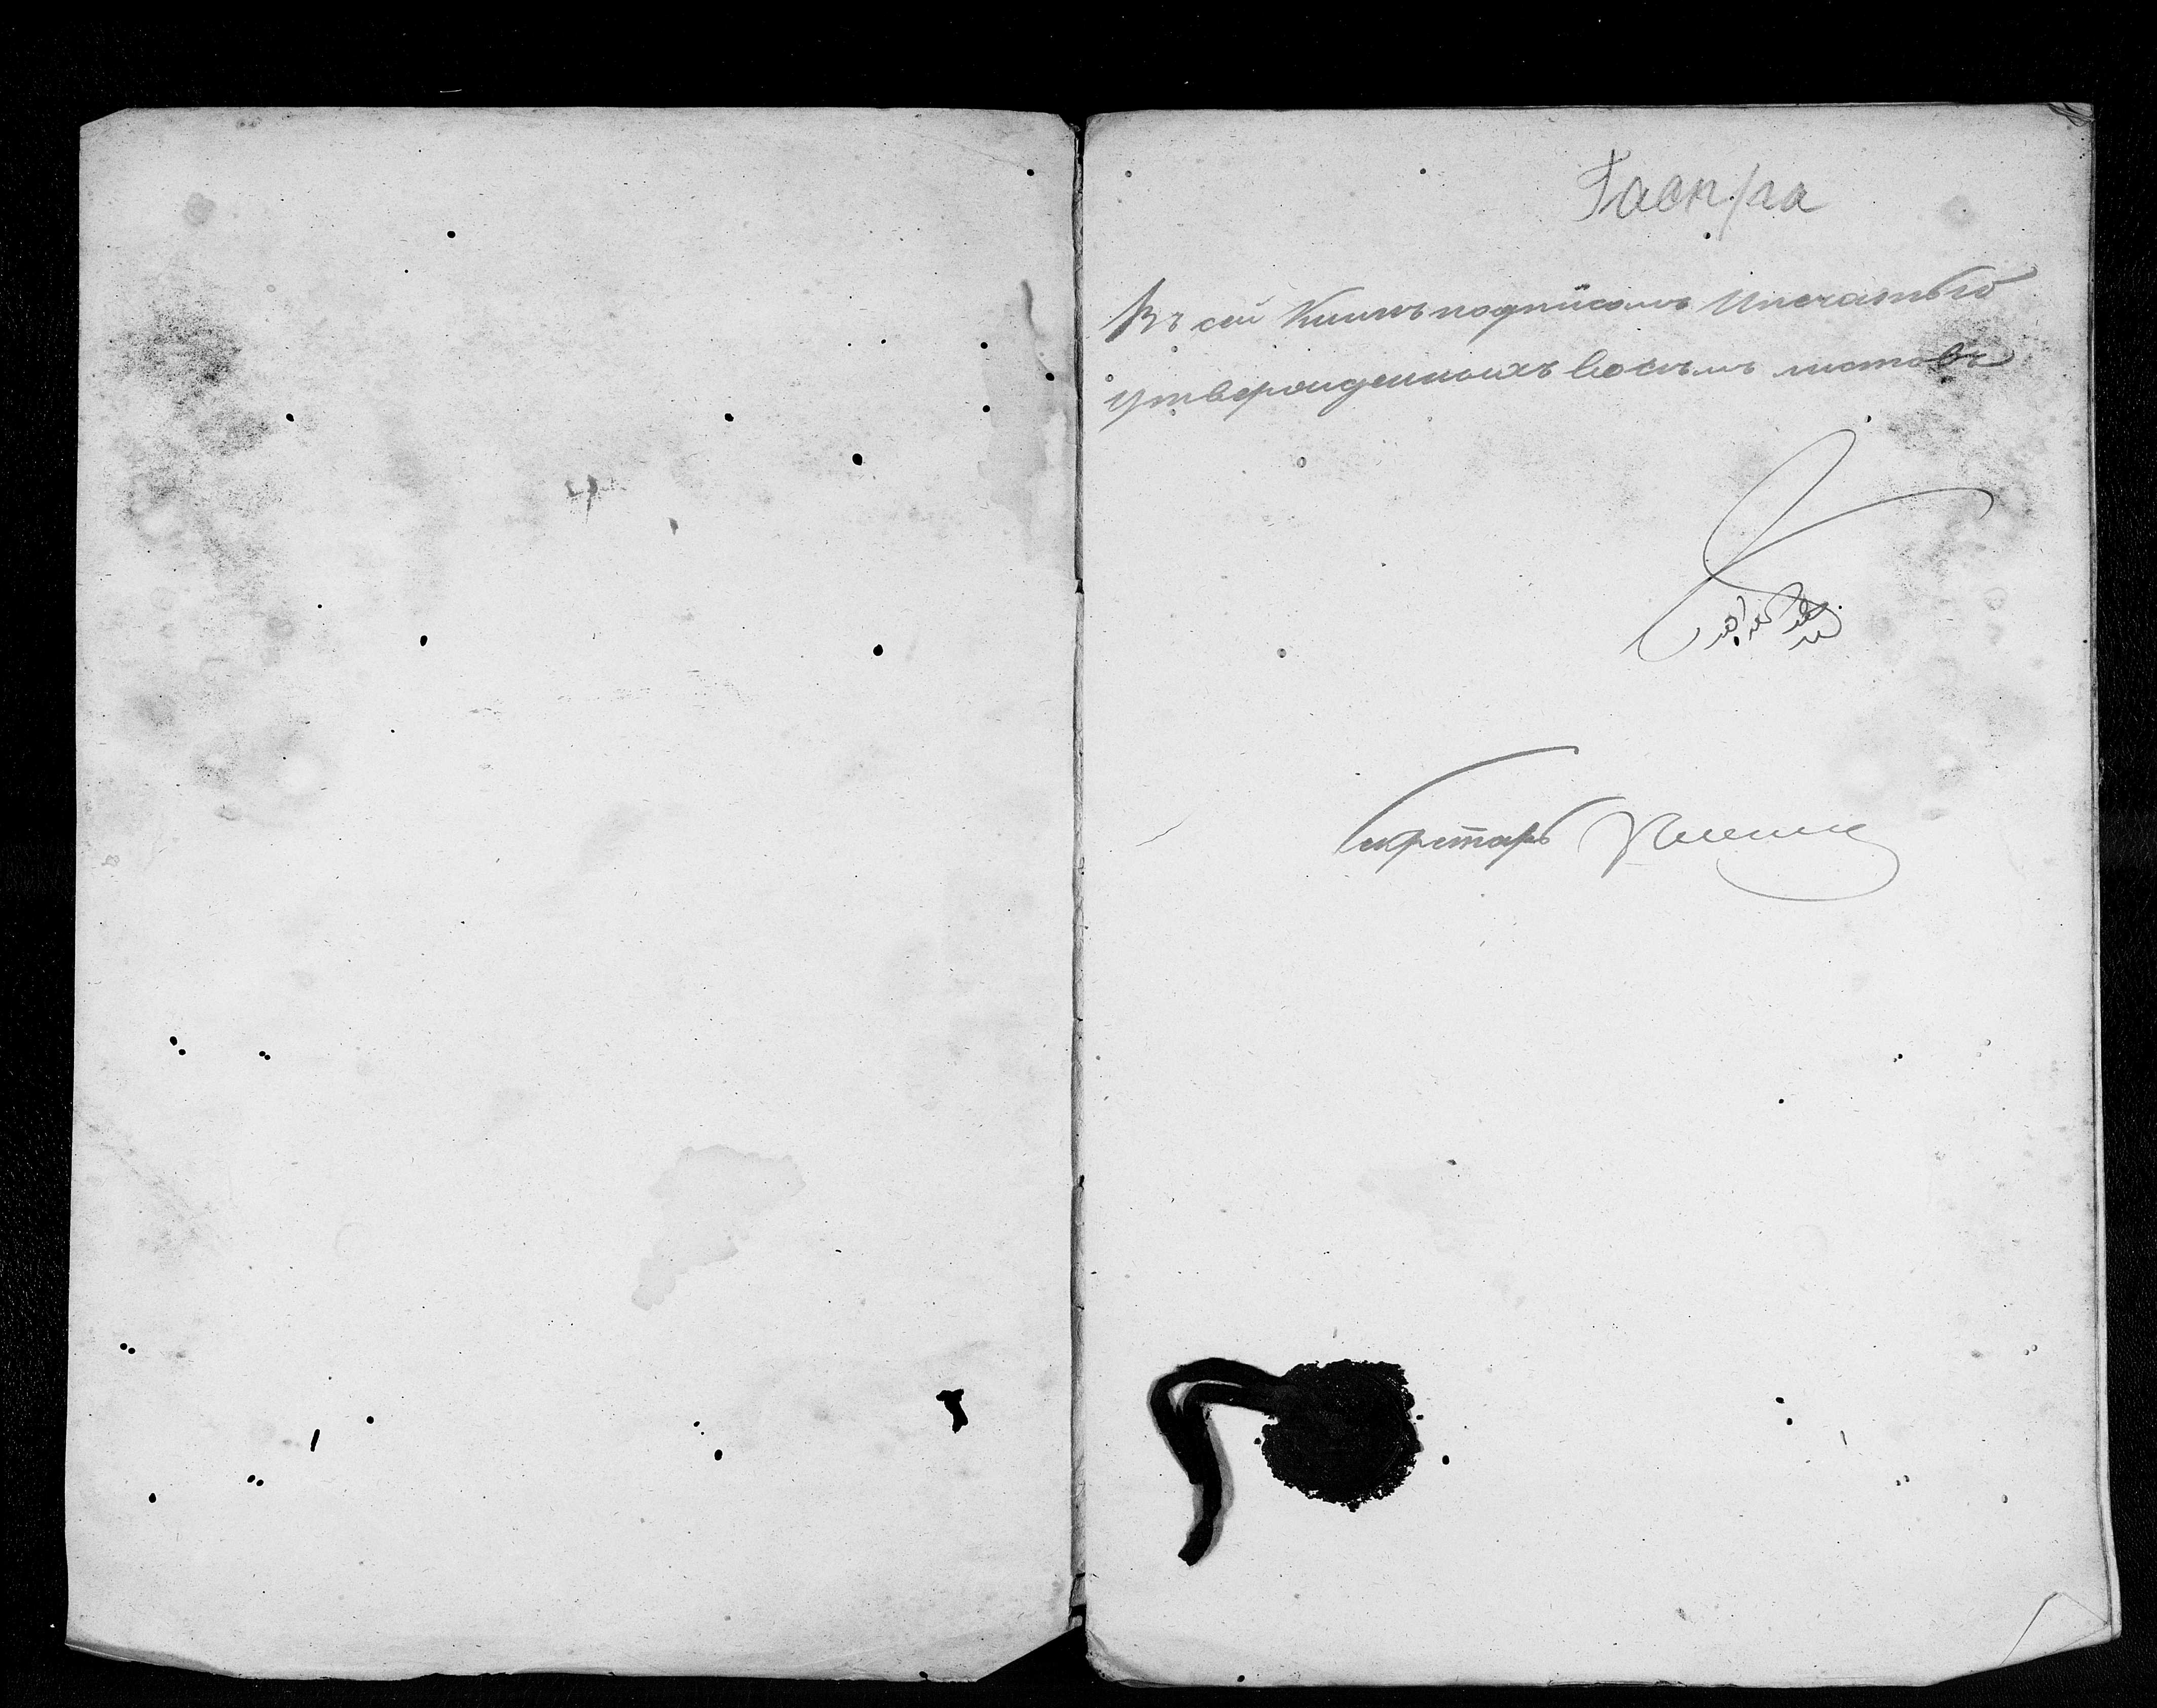 Гаспра
Въ сей Книгѣ подписомъ И печатью
утвержденныхъ восемь листовъ
Секретарь